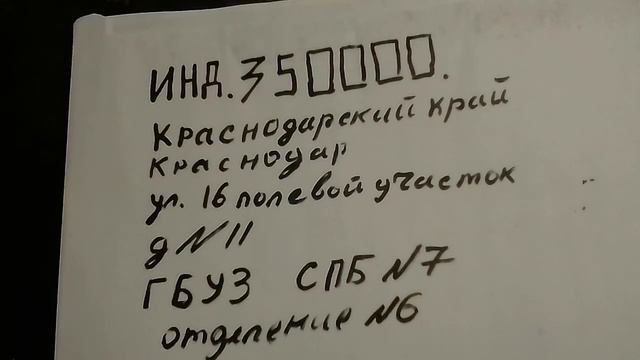 ИНД. 350000.
Краснодарский край
Краснодар
ул. 16 полевой участок
д №11
ГБУЗ СПБ №7
отделение №6